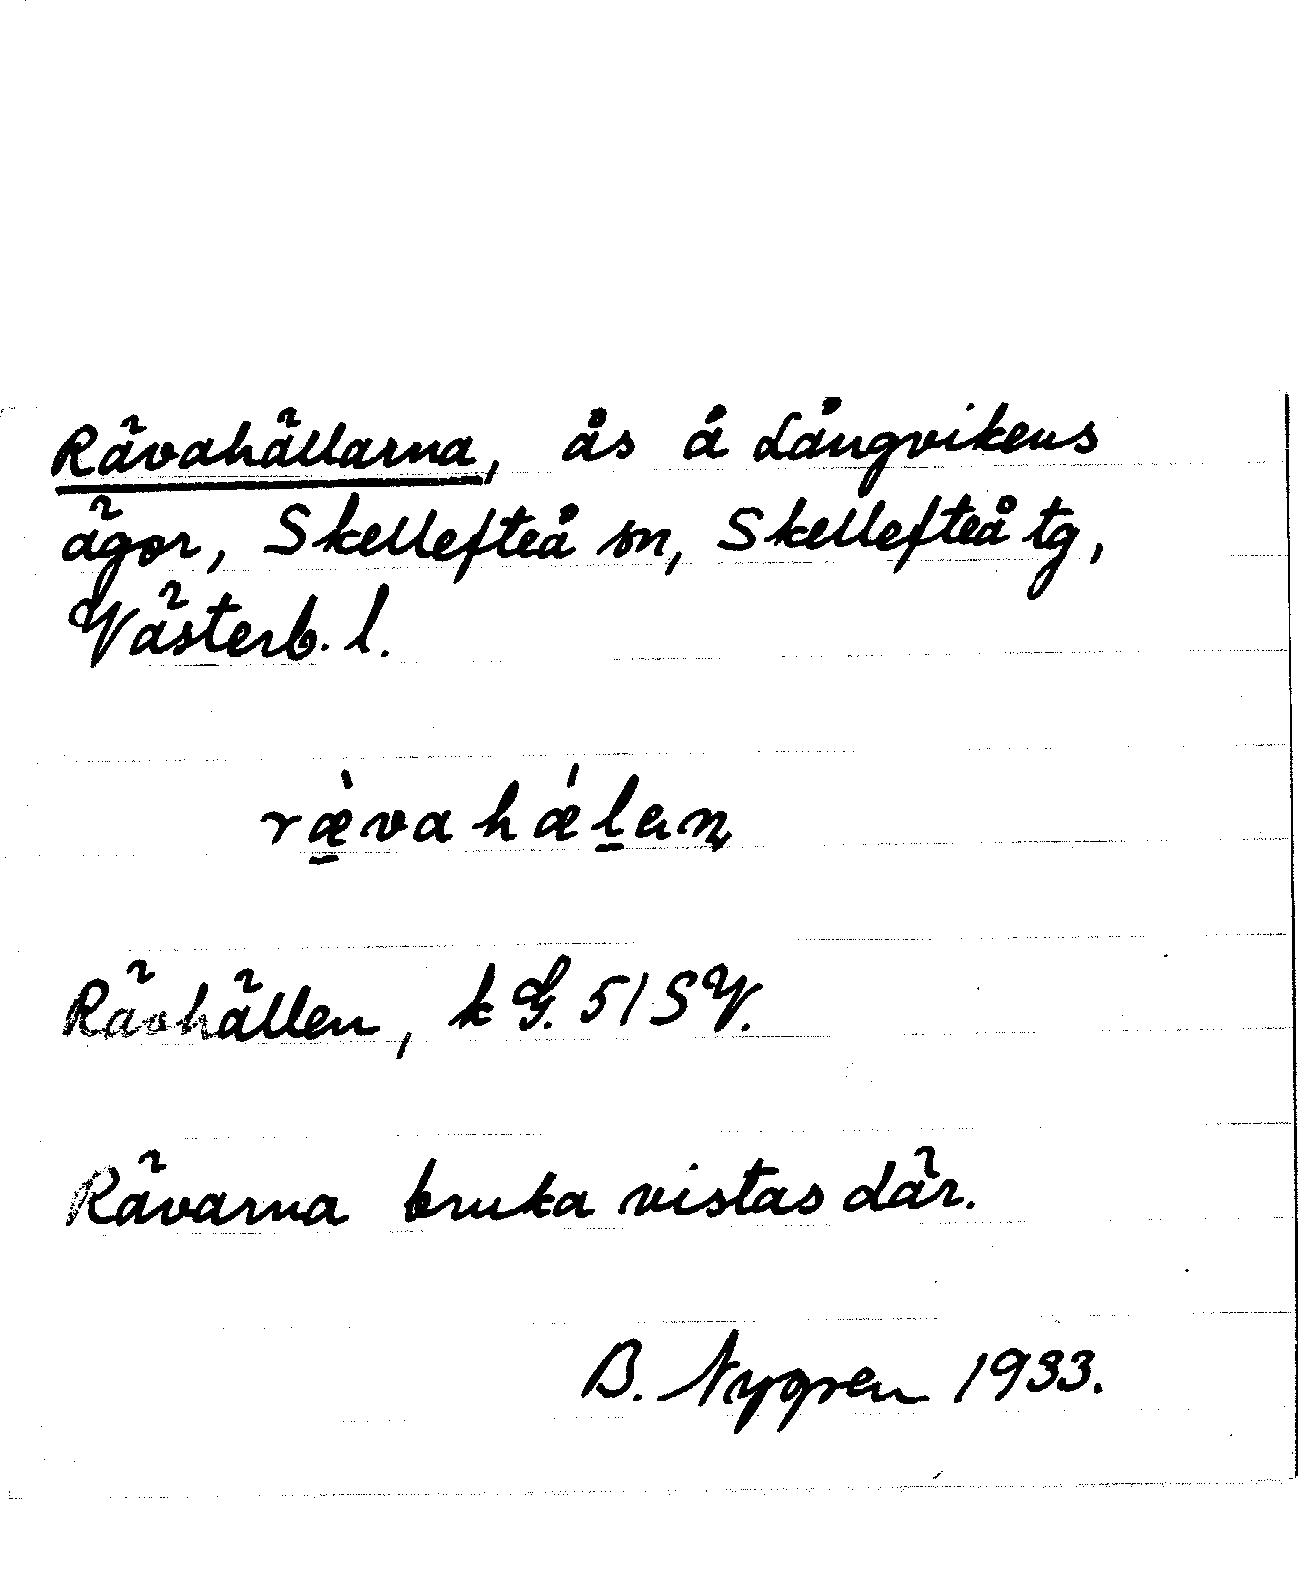 Rävahällarna, ås å Långvikens
ägor, Skellefteå sn, Skellefteå tg,
Västerb. l.
ræ̱̀vahǽḻaɳ
Rävhällen, k G. 51 SV.
Rävarna bruka vistas där.
B. Nygren 1933.